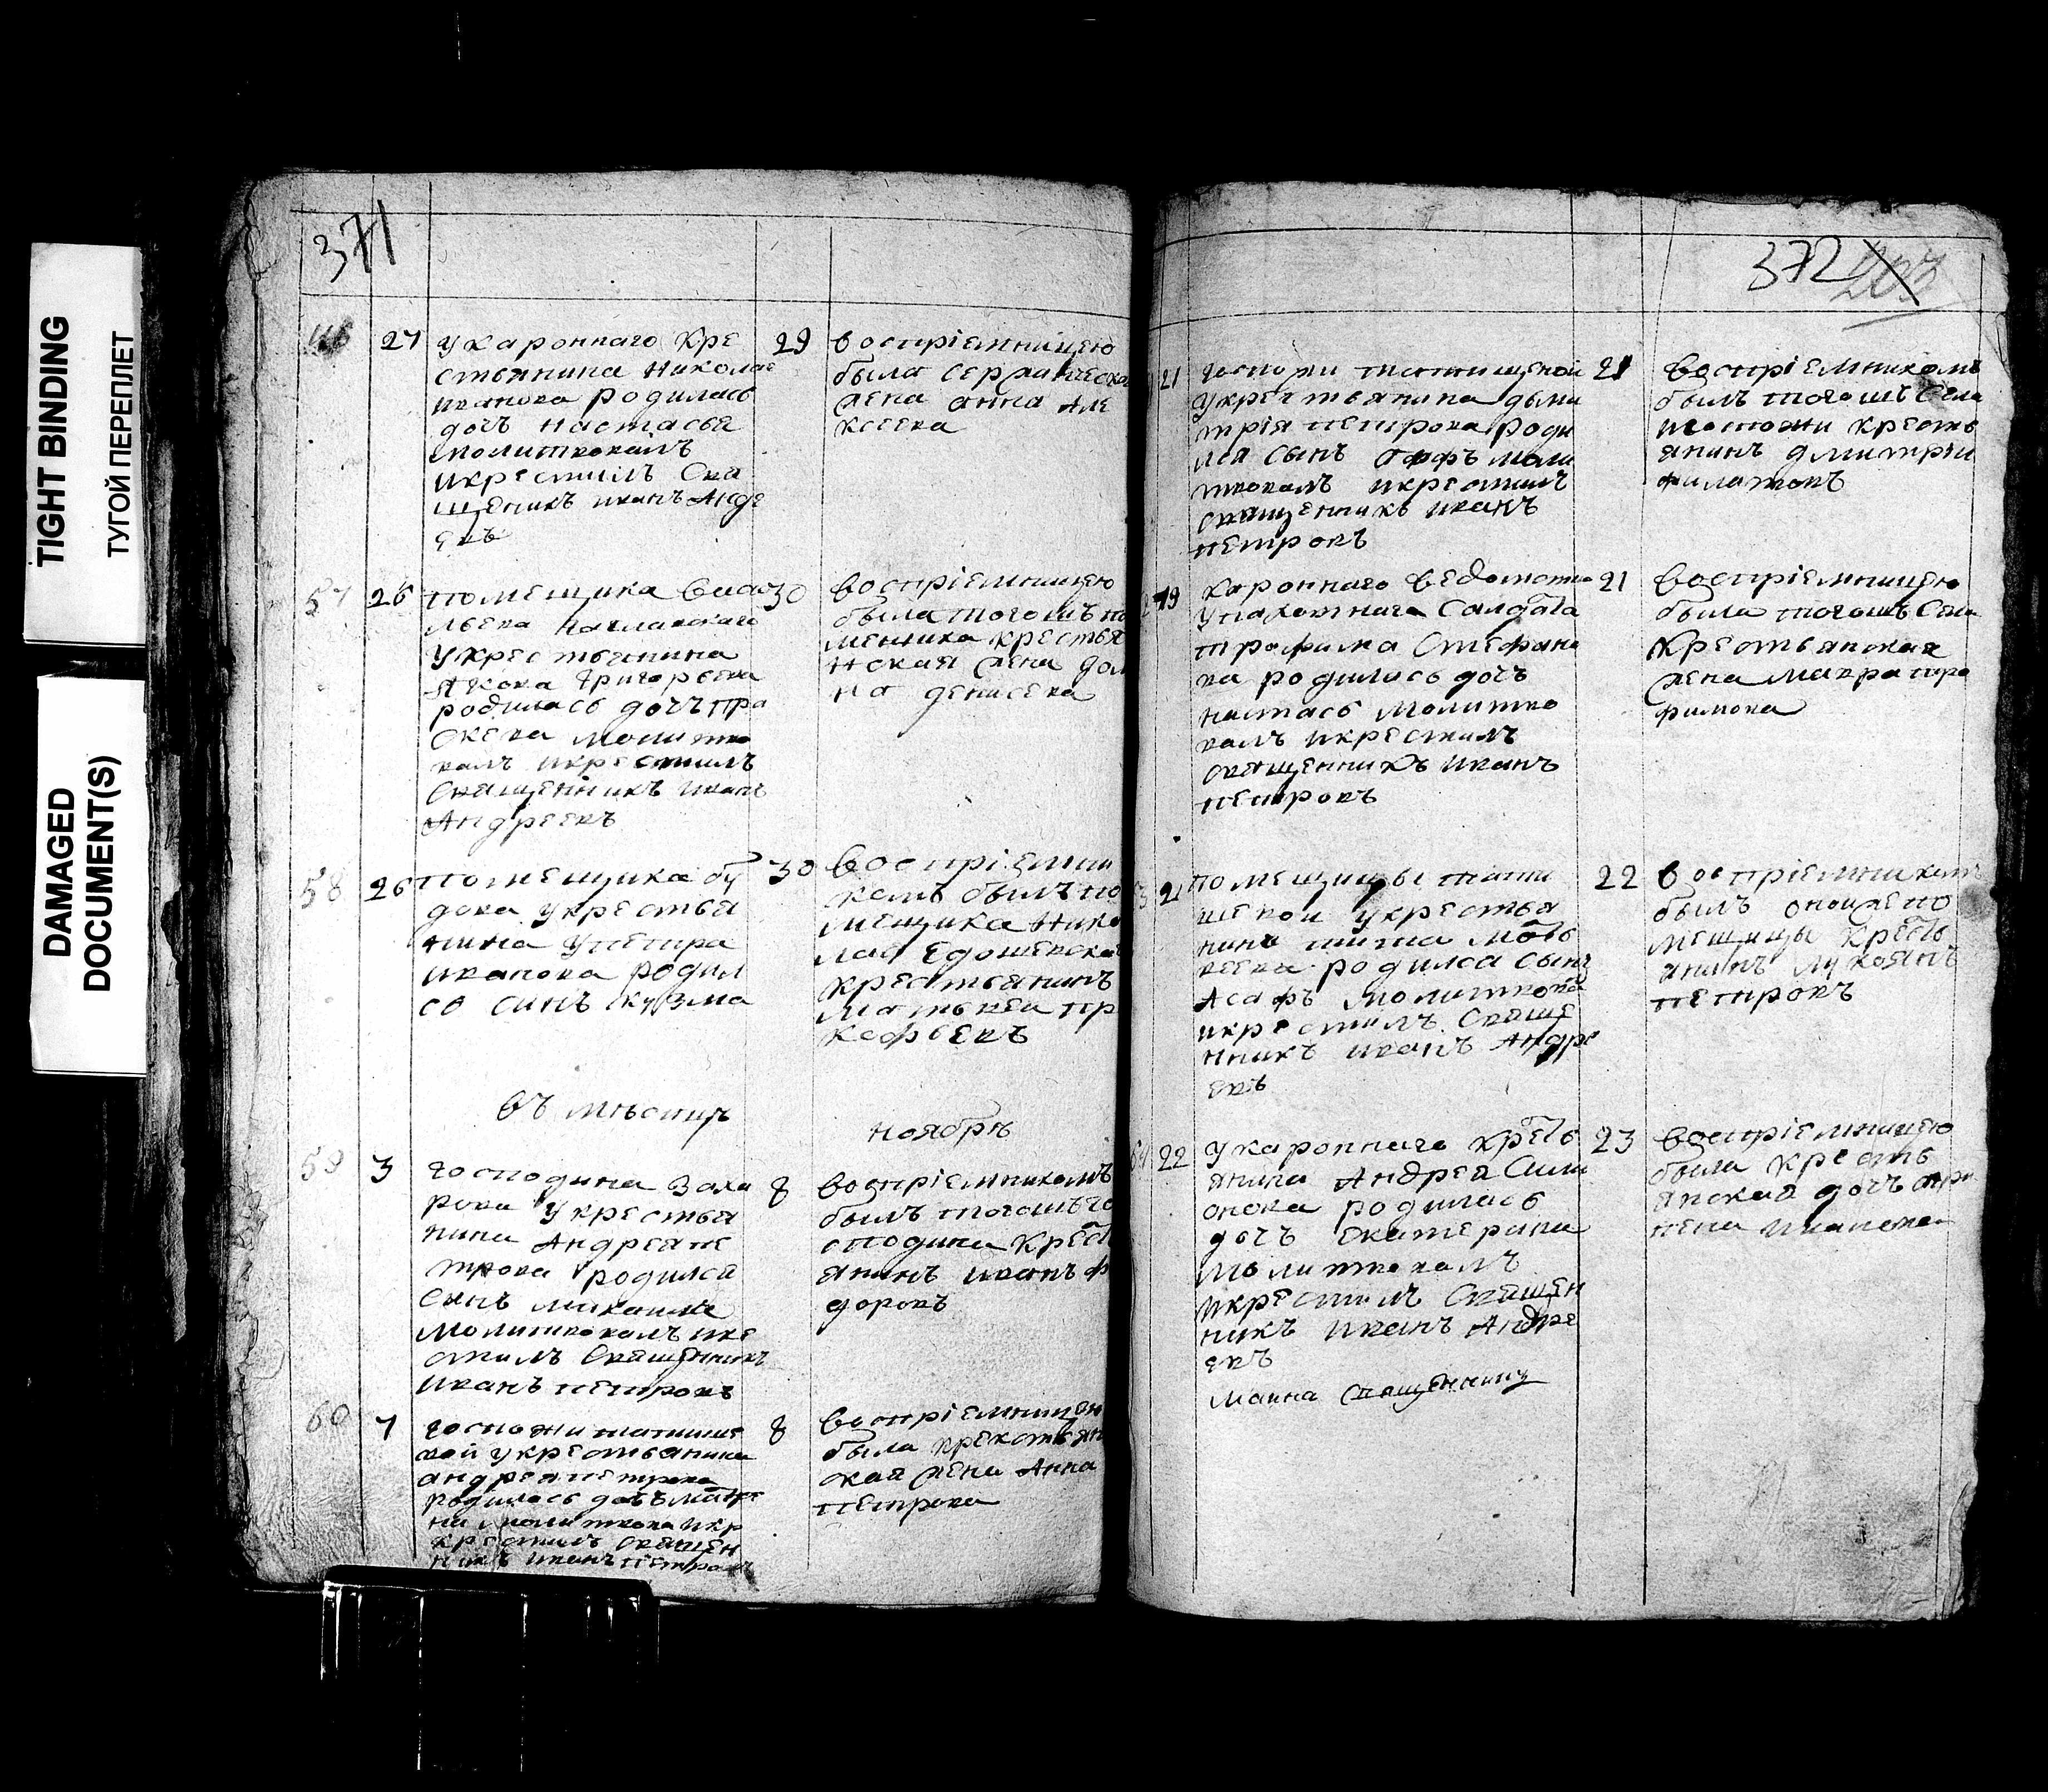 TIGHT BINDING
ТУГОЙ ПЕРЕПЛЕТ
DAMAGED
DOCUMENT(S)
371
27
укаронного кре
стьянина Николае
иванова родилась
дочъ настасья
молитвовалъ
икрестилъ Свя
щеникъ иванъ Андре
евъ
29
воспріемницею
была
жена анна але
ксеева
57
26
помещика Васи
льева
укрестьянина
Якова Григорьева
родилась дочъ пра
сковя молитво
валъ икрестилъ
Священникъ иванъ
Андреевъ
30
воспріемницею
была тогошъ по
мещика крестья
нская жена дом
на денисева
58
26
помещика бу
дова укрестья
нина упетра
иванова родил
со синъ кузма
30
воспріемни
камъ былъ по
мещика Нико
лая
крестьянинъ
матвей пр
кофьевъ
въ месяце
ноябрѣ
59
3
господина Заха
рова укрестья
нина Андрея пе
трова родился
сынъ михаила
молитвовалъ икре
стилъ Священникъ
иванъ петровъ
8
воспріемникомъ
былъ тогошъ го
сподина крест
янинъ иванъ ф
доровъ
60
7
госпожи татище
вой укрестьянина
андрея петрова
родилась дочъ матре
на молитвова икр
крестилъ священ
никъ иванъ петровъ
8
воспріемницею
была крекстьян
ская жена Анна
петрова
372
203
21
госпожи татищевой
укрестьянина дьми
трія петрова роди
лся сынъ молит
твовалъ икрестилъ
священникъ иванъ
петровъ
21
воспріемникомъ
былъ тогошъ села
госпожи кресть
янинъ дмитрій
филатовъ
19
каронного ведомства
Салдата
трофима Стефано
ва родилась дочъ
настась молитво
валъ икрестилъ
священникъ иванъ
петровъ
21
воспріемницею
была тогошъ Села
крестьянская
жена мавра тро
фимова
21
помещицы тати
щевой укрестья
нина тита матв
веева родилса сынъ
Асафъ молитвова
икрестилъ Свяще
нникъ иванъ Андре
евъ
22
воспріемникомъ
былъ оной же по
мещицы крестъ
янинъ лукоянъ
петровъ
22
укаронного крестъ
янина Андрея Сим
онова родилась
дочъ Екатерина
молитвовалъ
икрестилъ Священ
никъ иванъ Андре
евъ
23
воспріемницею
была кресть
янская дочъ
иванова